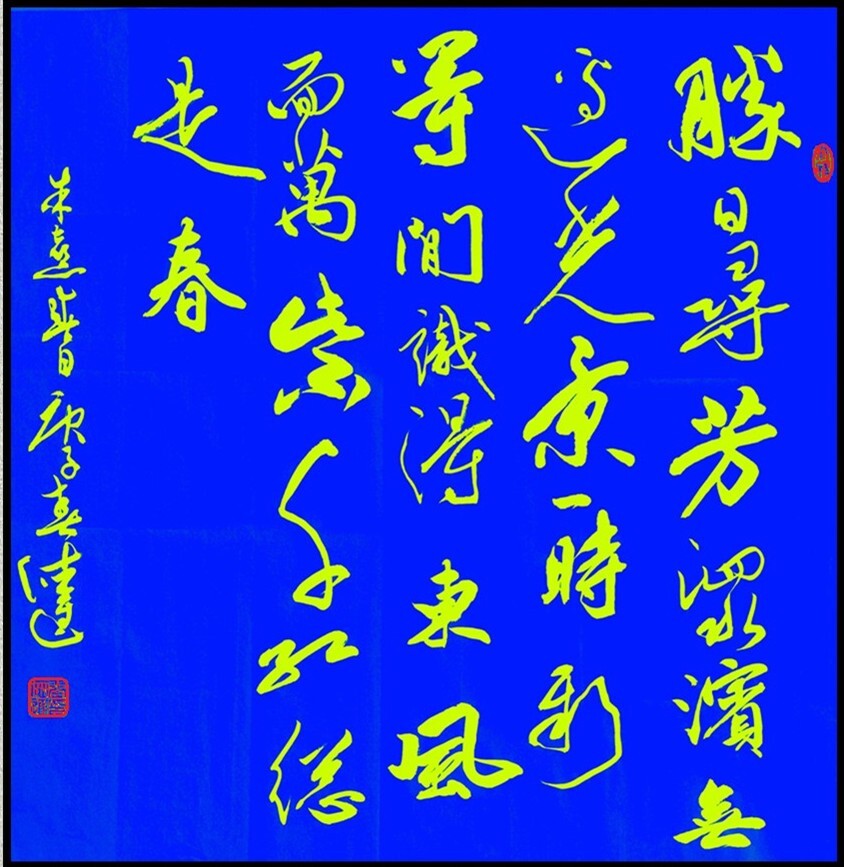 勝日尋芳泗水濱無
邊光景一時新
等閒識得東風
面萬紫千紅總
是春
朱熹春日庚子春